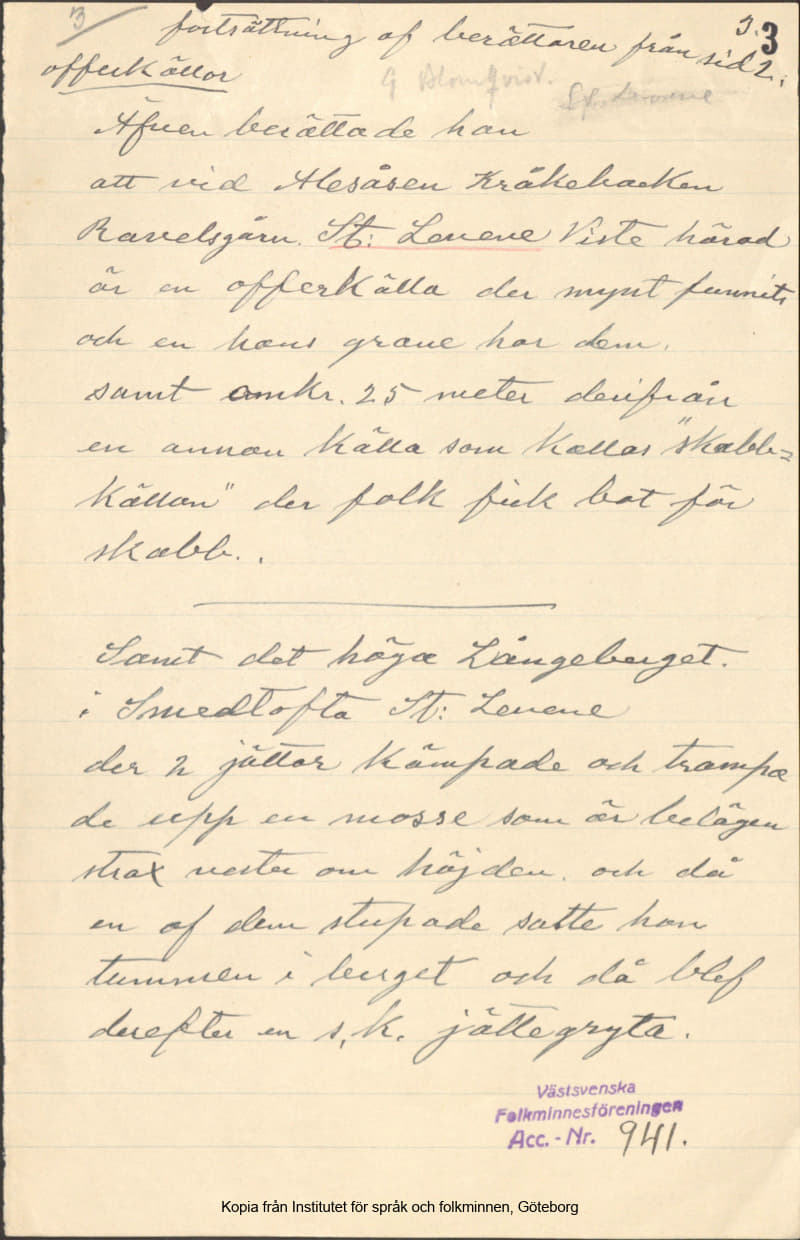 3
3. 3
fortsättning af berättaren från sid 2.
offerkällor
G Blomqvist. St. Levene
Äfven berättade han
att vid Alesåsen Kråkebacken
Ravelsgärn. St: Levene Viste härad
är en offerkälla der mynt funnits
och en hans grane har dem.
samt omkr. 25 meter derifrån
en annan källa som kallas "skabb=
källan" der folk fick bot för
skabb..
Samt det höga Långeberget.
i Smedtofta St: Levene
der 2 jättar kämpade och trampa
de upp en mosse som är belägen
strax vester om höjden. och då
en af dem stupade satte han
tummen i berget och då blef
derefter en s.k. jättegryta.
Västsvenska
Folkminnesföreningen
Acc. - Nr. 941.
Kopia från Institutet för språk och folkminnen, Göteborg